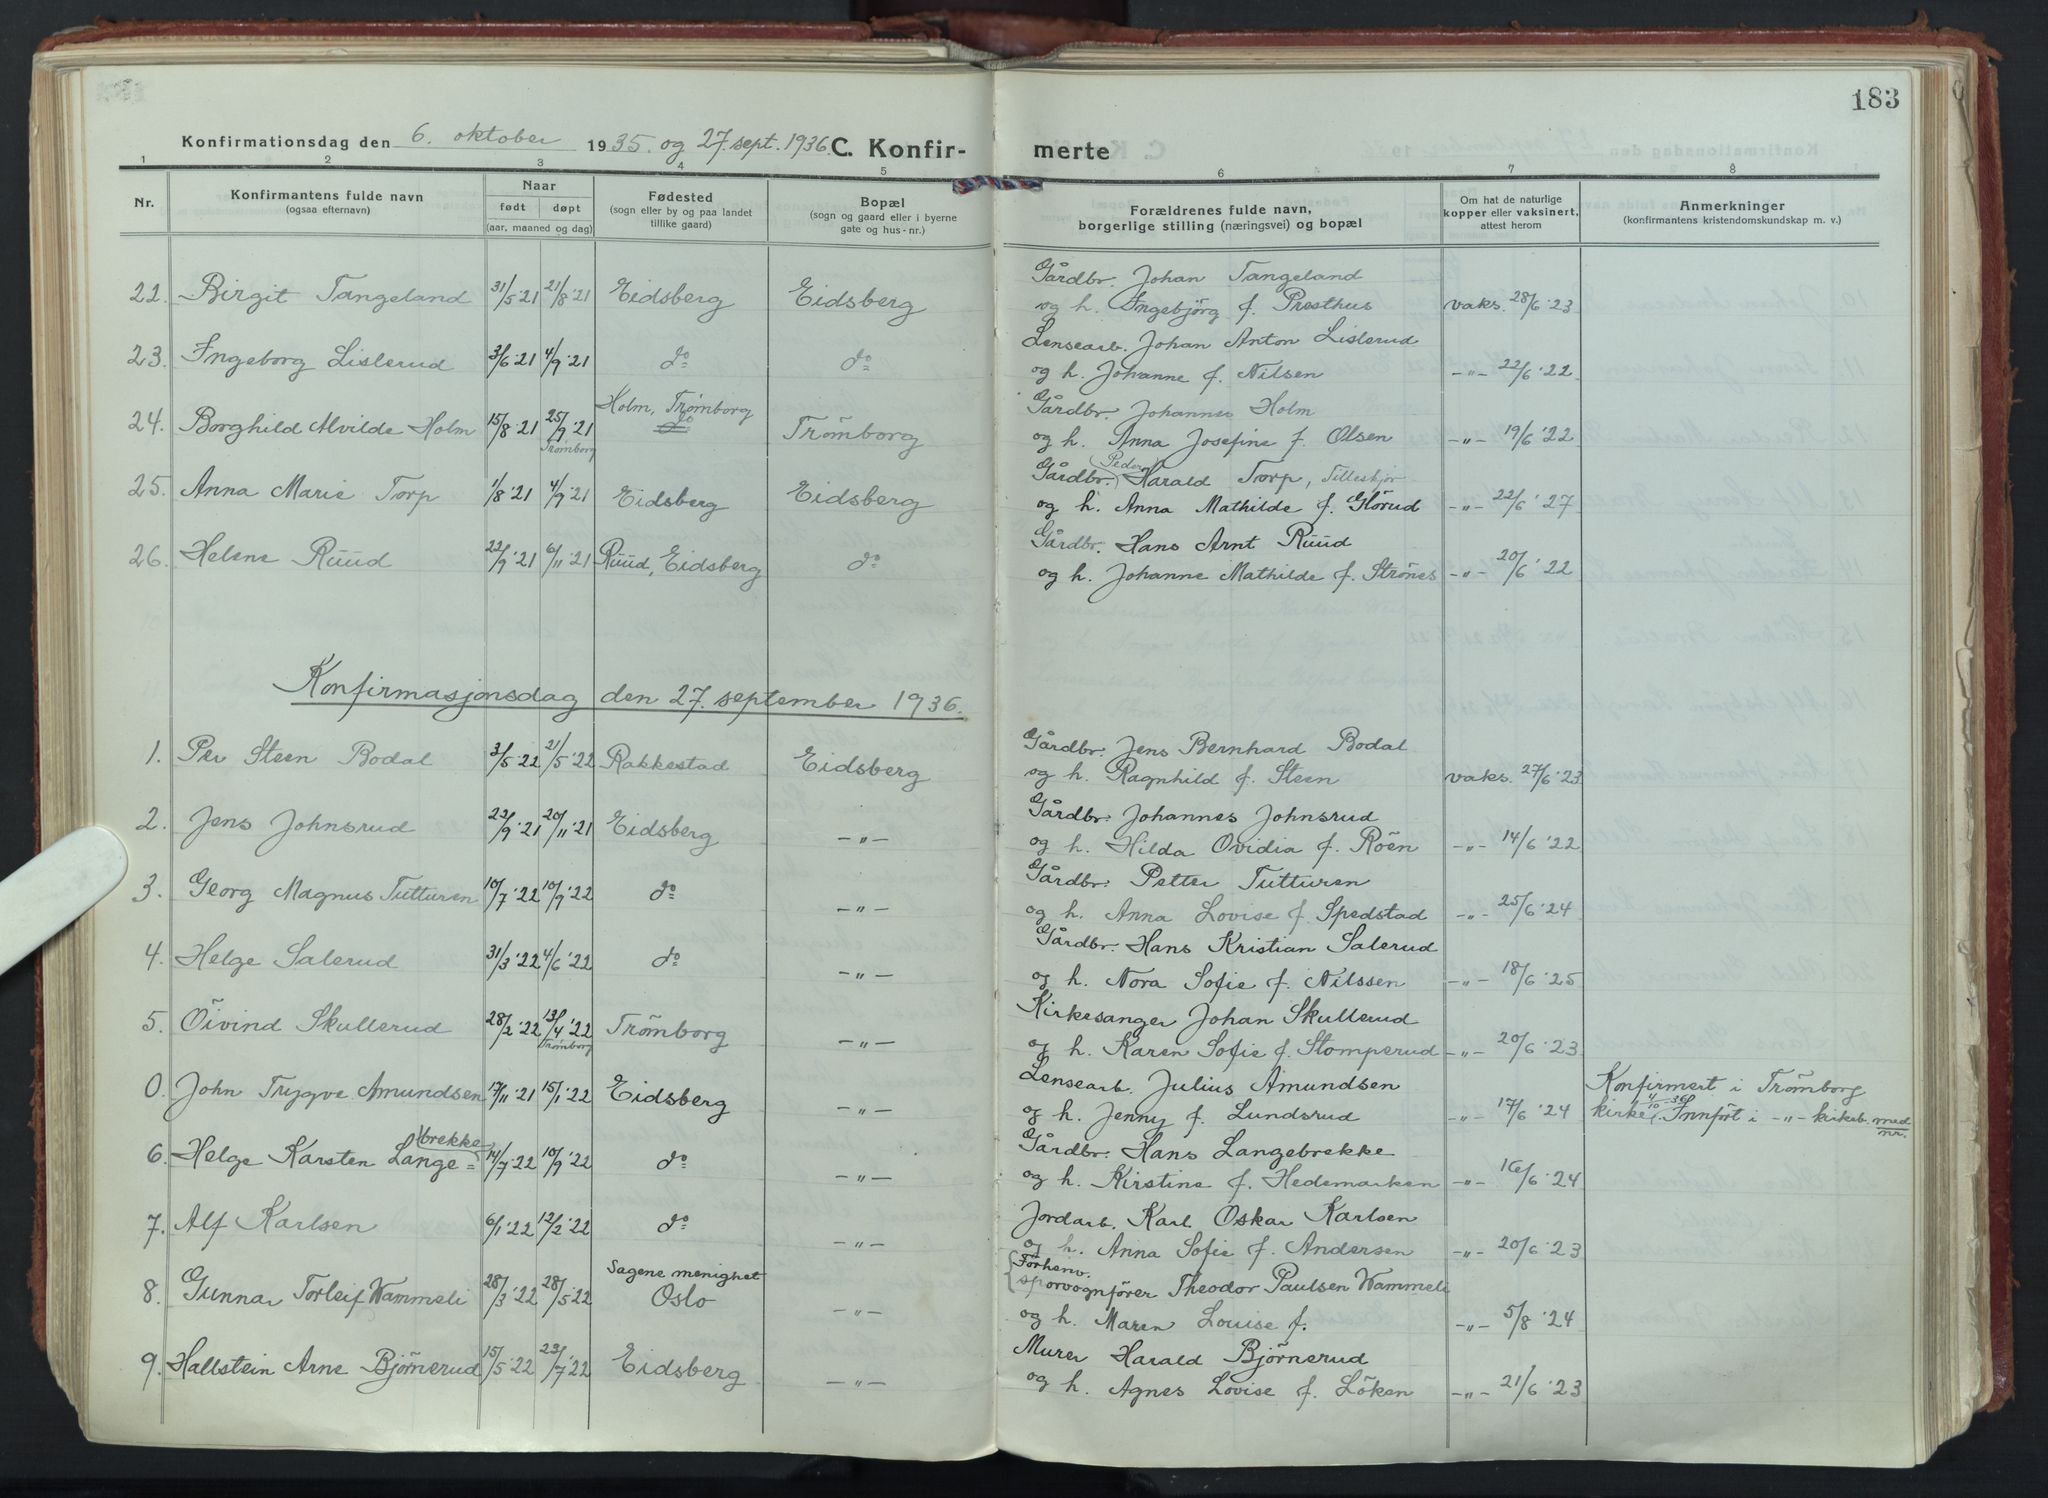 183
Konfirmationsdag den 6. oktober 1935. og 27. sept. 1936 C. Konfir- merte
1 2 3 4 5 6 7 8
Nr. Konfirmantens fulde navn (ogsaa efternavn) Naar født døpt (aar, maaned og dag) Fødested (sogn eller by og paa landet tillike gaard) Bopæl (sogn og gaard eller i byerne gate og hus-nr.) Forældrenes fulde navn, borgerlige stilling (næringsvei) og bopæl Om hat de naturlige kopper eller vaksinert, attest herom Anmerkninger (konfirmantens kristendomskundskap m. v.)
Gårdbr. Johan Tangeland
22. Birgit Tangeland 31/5 '21 21/8 '21 Eidsberg Eidsberg og h. Ingebjörg f. Presthus vaks. 28/6 '23
Lensearb. Johan Anton Lislerud
23. Ingeborg Lislerud 3/6 '21 4/9 '21 do do og h. Johanne f. Nilsen -"- 22/6 '22
Holm, Trømborg Gårdbr. Johannes Holm
24. Borghild Alvilde Holm 15/8 '21 25/9 '21 Trømborg do Trömborg og h. Anna Josefine f. Olsen -"- 19/6 '22
Gårdbr. (Peder) Harald Torp, Tilleskjör
25. Anna Marie Torp 1/8 '21 4/9 '21 Eidsberg Eidsberg og h. Anna Mathilde f. Glörud -"- 22/6 '27
Gårdbr. Hans Arnt Ruud
26. Helene Ruud 22/9 '21 6/11 '21 Ruud, Eidsberg do og h. Johanne Mathilde f. Strönes -"- 20/6 '22
Konfirmasjonsdag den 27. september 1936.
Gårdbr. Jens Bernhard Bodal
1. Per Steen Bodal 3/5 '22 21/5 '22 Rakkestad Eidsberg og h. Ragnhild f. Steen vaks. 27/6 '23
Gårdbr. Johannes Johnsrud
2. Jens Johnsrud 22/9 '21 20/11 '21 Eidsberg -"- og h. Hilda Ovidia f. Röen -"- 14/6 '22
Gårdbr. Petter Tutturen
3. Georg Magnus Tutturen 10/7 '22 10/9 '22 do -"- og h. Anna Lovise f. Spedstad -"- 25/6 '24
Gårdbr. Hans Kristian Salerud
4. Helge Salerud 31/3 '22 4/6 '22 do -"- og h. Nora Sofie f. Nilssen -"- 18/6 '25
Kirkesanger Johan Skullerud
5. Öivind Skullerud 28/2 '22 13/4 '22 Trømborg Trömborg -"- og h. Karen Sofie f. Stomperud -"- 20/6 '23
Lensearb. Julius Amundsen Konfirmert i Trömborg
0. John Trygve Amundsen 17/11 '21 15/1 '22 Eidsberg -"- og h. Jenny f. Lundsrud -"- 17/6 '24 kirke 4/10 36. Innfört i -"- kirkeb. med nr.
Gårdbr. Hans Langebrekke
6. Helge Karsten Lange= brekke 14/7 '22 10/9 '22 do -"- og h. Kirstine f. Hedemarken -"- 16/6 '24
Jordarb. Karl Oskar Karlsen
7. Alf Karlsen 6/1 '22 12/2 '22 do -"- og h. Anna Sofie f. Andersen -"- 20/6 '23
Sagene menighet Forhenv. sporvognförer Theodor Paulsen Wammeli
8. Gunnar Torleif Wammeli 28/3 '22 28/5 '22 Oslo -"- og h. Maren Louise f. -"- 5/8 '24
Murer Harald Björnerud
9. Hallstein Arne Björnerud 15/5 '22 23/7 '22 Eidsberg -"- og h. Agnes Lovise f. Löken -"- 21/6 '23